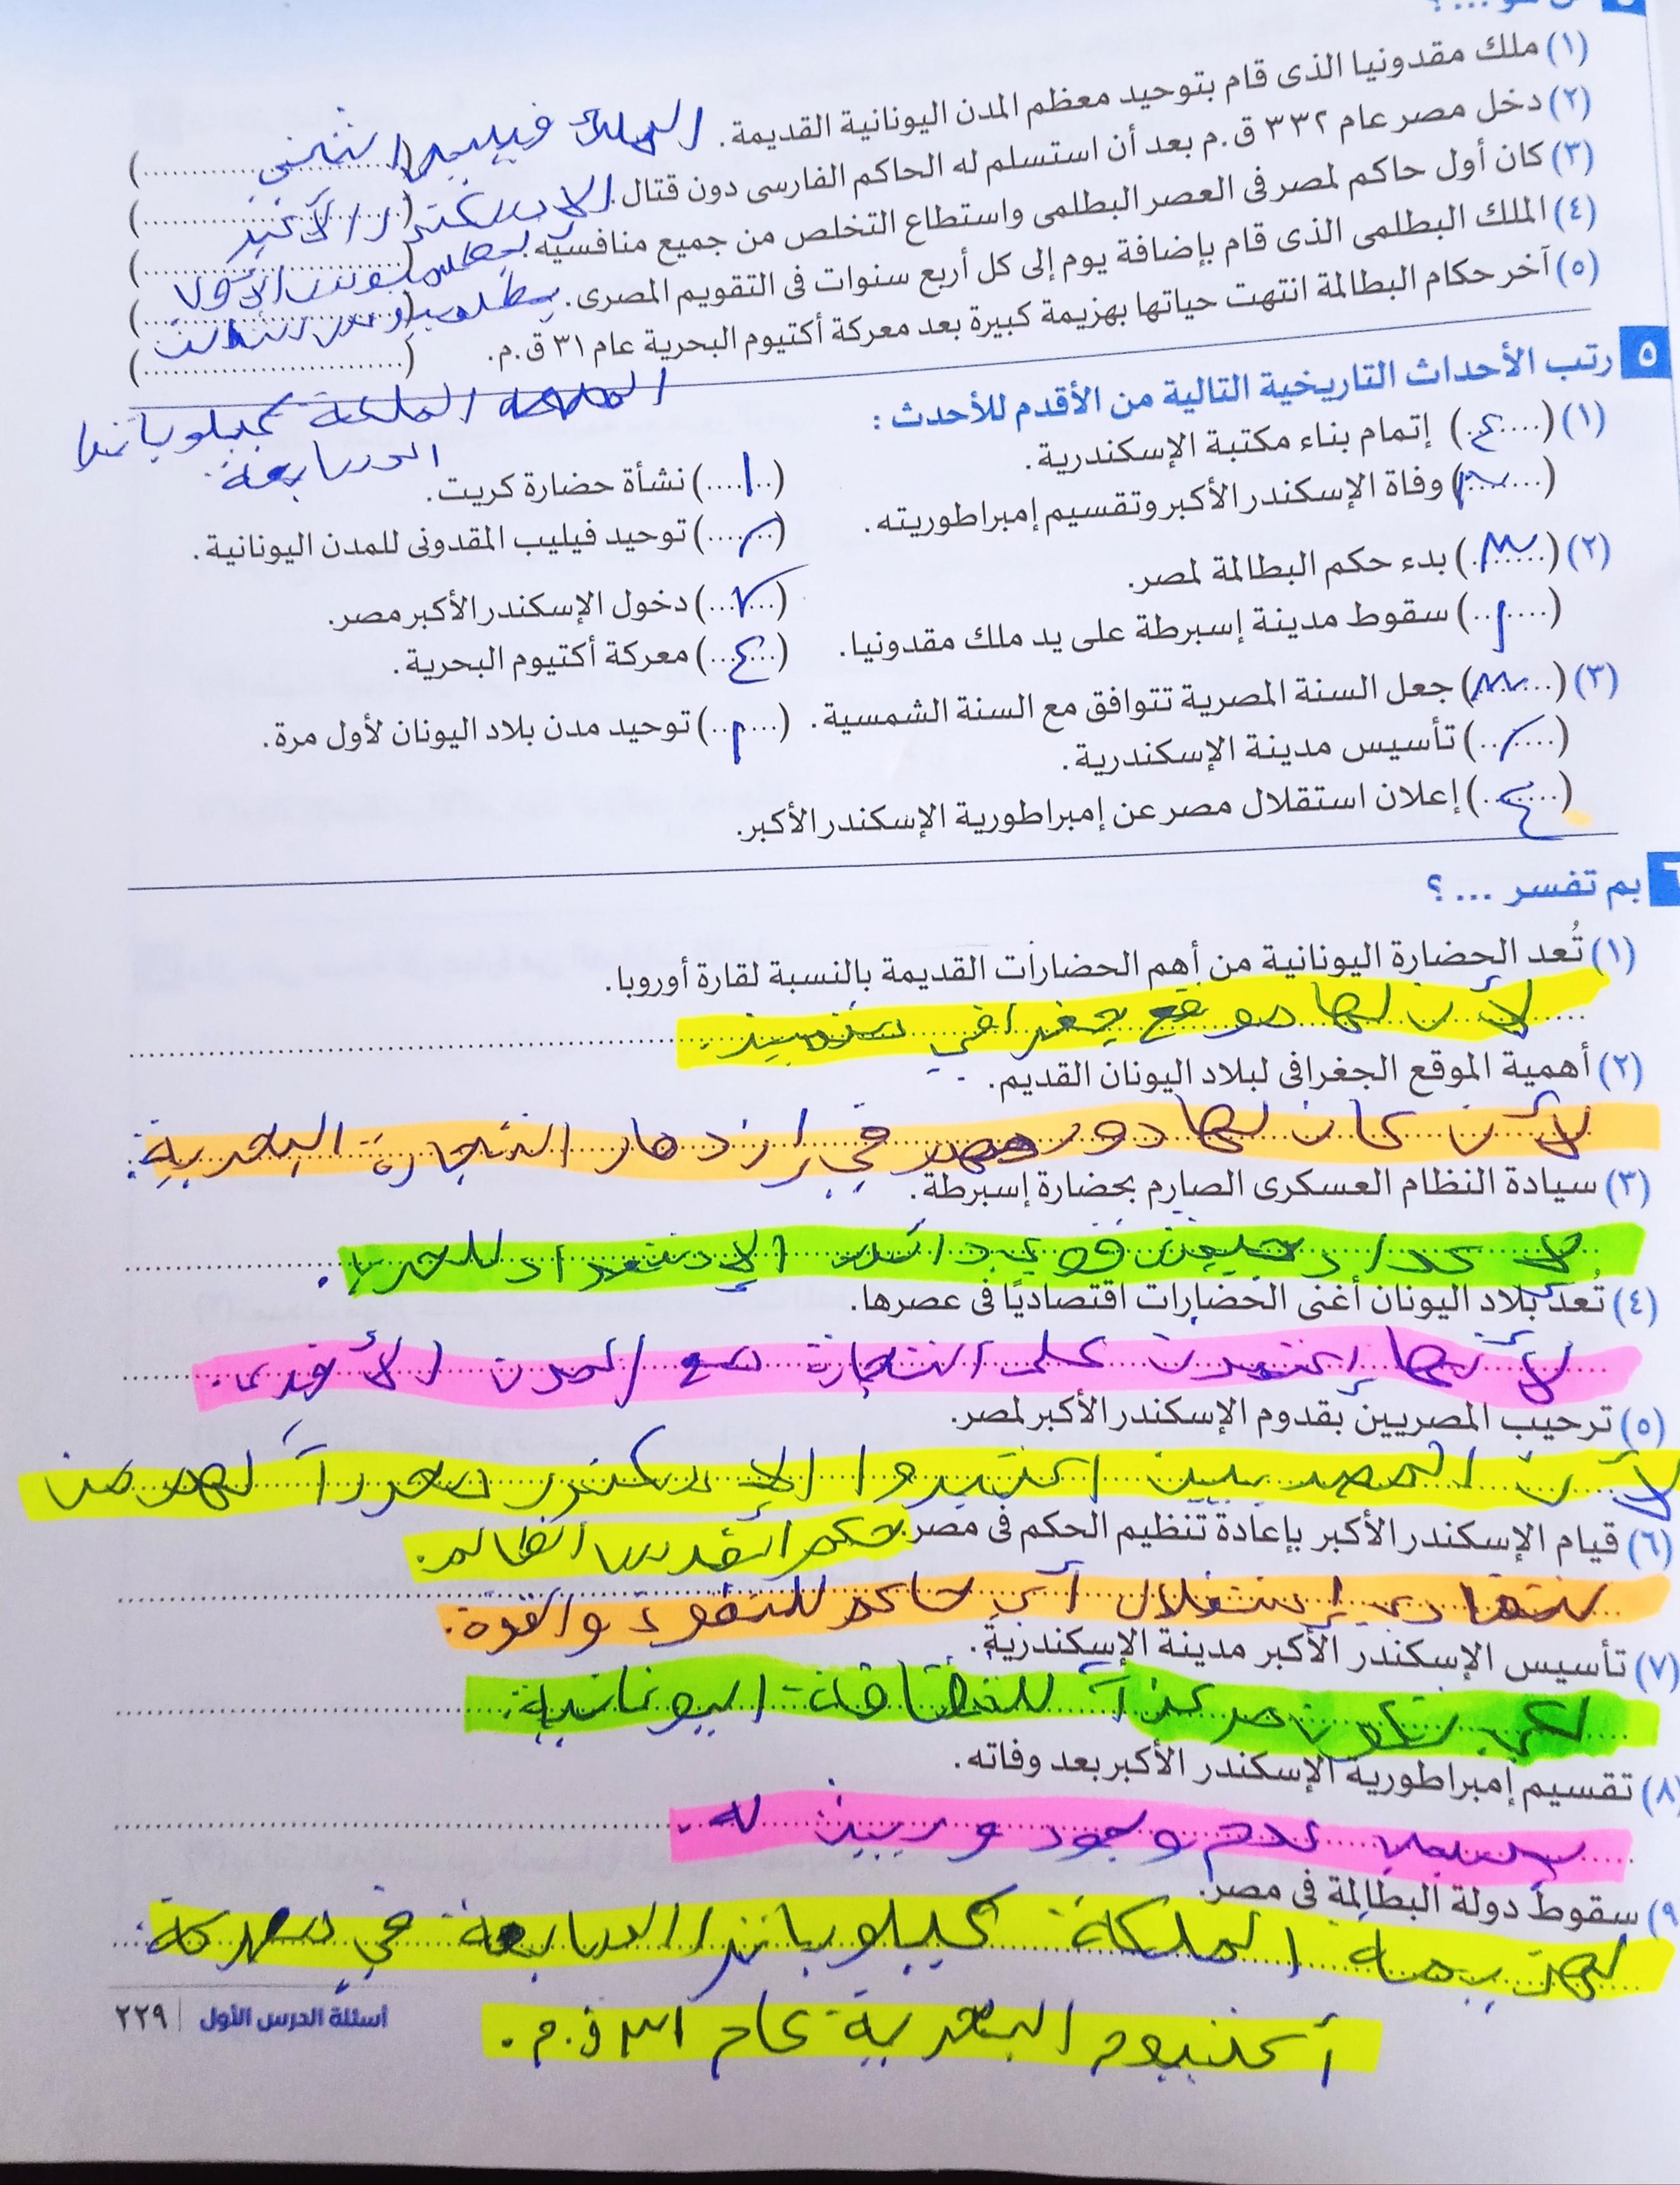 (١) ملك مقدونيا الذى قام بتوحيد معظم المدن اليونانية القديمة. الملك فيليب الثاني (..........)
(٢) دخل مصر عام ٣٣٢ ق.م بعد أن استسلم له الحاكم الفارسى دون قتال. الإسكندر الأكبر (..........)
(٣) كان أول حاكم لمصر فى العصر البطلمى واستطاع التخلص من جميع منافسيه. بطلميوس الأول (..........)
(٤) الملك البطلمى الذى قام بإضافة يوم إلى كل أربع سنوات فى التقويم المصرى. بطلميوس الثالث (..........)
(٥) آخر حكام البطالمة انتهت حياتها بهزيمة كبيرة بعد معركة أكتيوم البحرية عام ٣١ ق.م. (..........)
الملكة كيلوباترا
السابعة
٥ رتب الأحداث التاريخية التالية من الأقدم للأحدث :
(١) (٤) إتمام بناء مكتبة الإسكندرية.
(١) نشأة حضارة كريت.
(٣) وفاة الإسكندر الأكبر وتقسيم إمبراطوريته.
(٢) توحيد فيليب المقدونى للمدن اليونانية.
(٢) (٣) بدء حكم البطالمة لمصر.
(٢) دخول الإسكندر الأكبر مصر.
(١) سقوط مدينة إسبرطة على يد ملك مقدونيا.
(٤) معركة أكتيوم البحرية.
(٣) (٣) جعل السنة المصرية تتوافق مع السنة الشمسية.
(١) توحيد مدن بلاد اليونان لأول مرة.
(٢) تأسيس مدينة الإسكندرية.
(٤) إعلان استقلال مصر عن إمبراطورية الإسكندر الأكبر.
٦ بم تفسر ... ؟
(١) تُعد الحضارة اليونانية من أهم الحضارات القديمة بالنسبة لقارة أوروبا.
لأن لها موقع جغرافي متميز.
(٢) أهمية الموقع الجغرافى لبلاد اليونان القديم.
لأن كان لها دور مهم في إزدهار التجارة البحرية.
(٣) سيادة النظام العسكرى الصارم بحضارة إسبرطة.
لإعداد جيش قوي دائم الإستعداد للحرب.
(٤) تُعد بلاد اليونان أغنى الحضارات اقتصاديًا فى عصرها.
لأنها إعتمدت على التجارة مع المدن الأخرى.
(٥) ترحيب المصريين بقدوم الإسكندر الأكبر لمصر.
لأن المصريين اعتبروا الإسكندر محرراً لهم من
حكم الفرس الظالم.
(٦) قيام الإسكندر الأكبر بإعادة تنظيم الحكم فى مصر.
لتفادي إستغلال أي حاكم للنفوذ والقوة.
(٧) تأسيس الإسكندر الأكبر مدينة الإسكندرية.
لكي تكون مركزاً للثقافة اليونانية.
(٨) تقسيم إمبراطورية الإسكندر الأكبر بعد وفاته.
بسبب عدم وجود وريث له.
(٩) سقوط دولة البطالمة فى مصر.
لهزيمة الملكة كيلوباترا السابعة في معركة
أكتيوم البحرية عام ٣١ ق.م.
أسئلة الدرس الأول | ٢٢٩